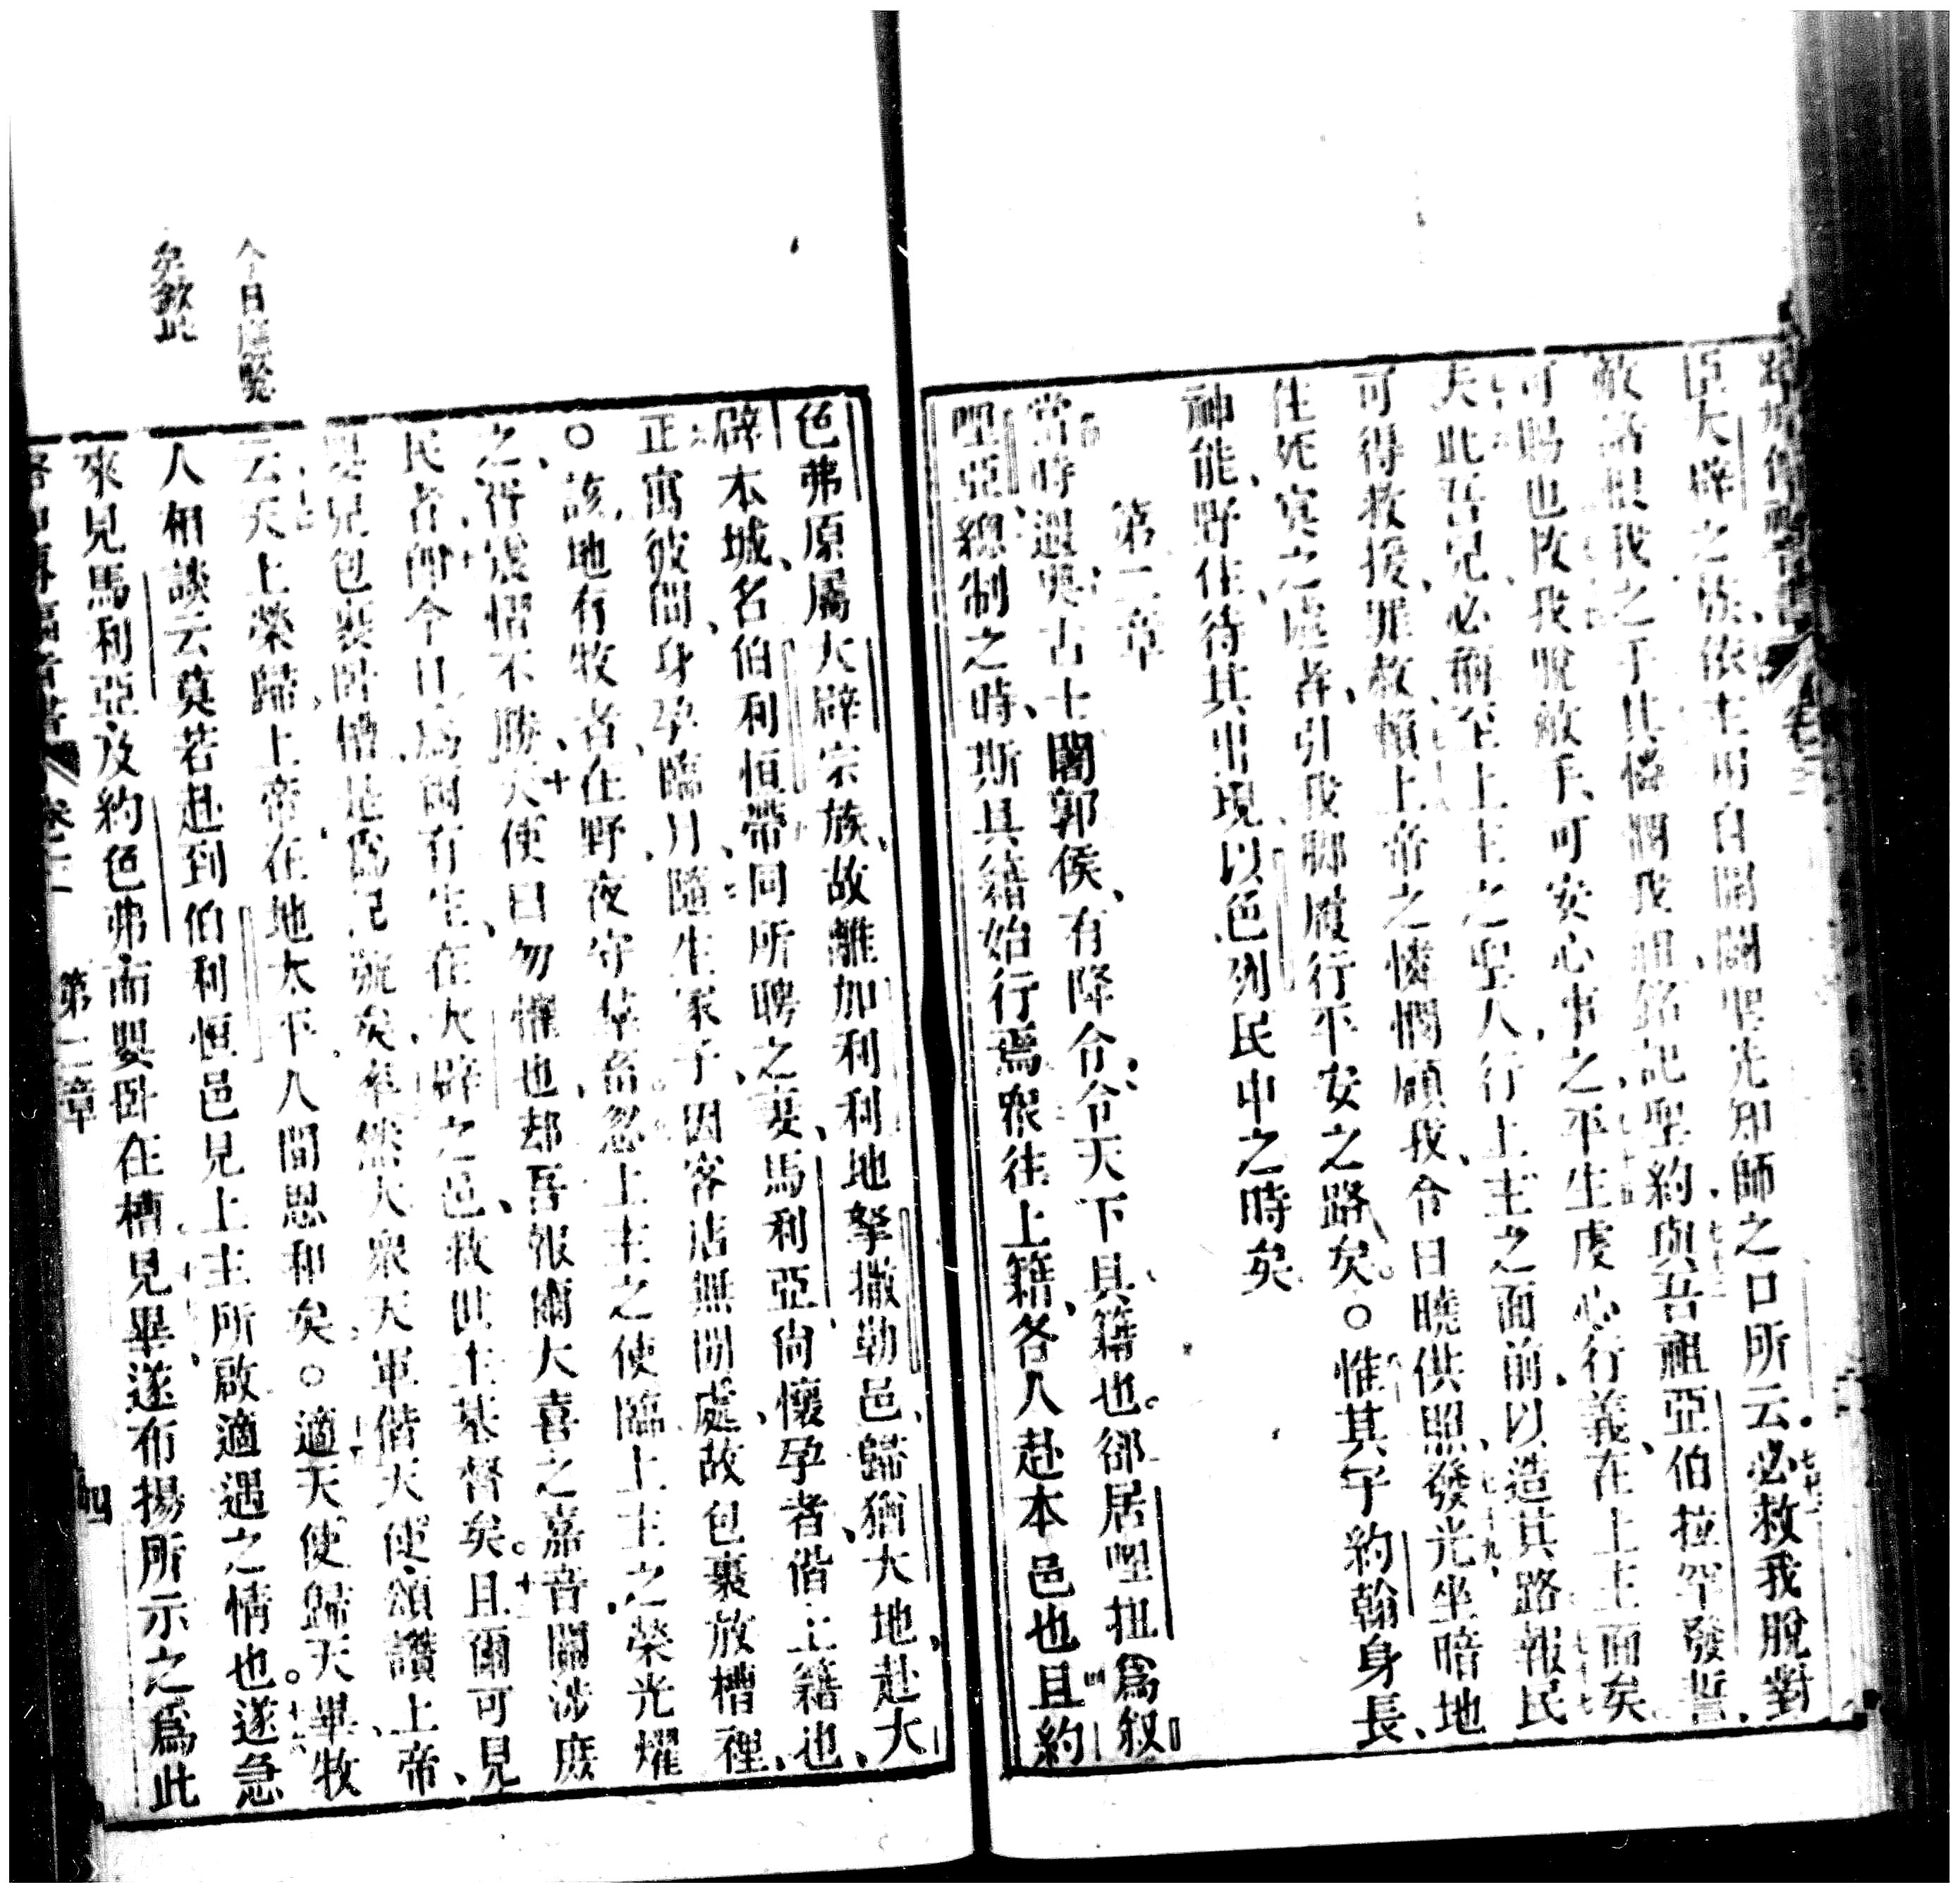 臣大辟之族依主用自開闢聖光知師之口所云必救我脫對
敵諸恨我之手其憐憫我祖銘記聖約與吾祖亞伯拉罕發誓
可賜也故我脫敵手可安心事之平生虔心行義在上主面矣
夫此吾兒必稱至上主之聖人行上主之面前以造其路報民
可得救援罪赦賴上帝之憐憫顧我令日曉供照發光坐暗地
住死寞之區者引我腳履行平安之路矣○惟其子約翰身長
神能野住待其出現以色列民中之時矣
第二章
當時遐奧古士闍郭侯有降令令天下具籍也郤居哩扭為叙
哩亞總制之時斯具籍始行焉眾往上籍各人赴本邑也且約
色弗原屬大辟宗族故離加利利地拏撒勒邑歸猶大地赴大
辟本城名伯利恒帶同所聘之妻馬利亞尙懷孕者偕上籍也
正寓彼間身孕臨月隨生冢子因客店無閒處故包裹放槽裡
○該地有牧者在野夜守羣畜忽上主之使臨上主之榮光燿
之皆震慴不勝天使曰勿懼也却吾報爾大喜之嘉音關涉庶
民者卽今日為爾有生在大辟之邑救世主基督矣且爾可見
嬰兒包裝卧槽是為記號矣牽然大眾天軍偕天使頌讚上帝
云天上榮歸上帝在地太平人間恩和矣○適天使歸天畢牧
人相談云莫若赴到伯利恒邑見上主所啟適遇之情也遂急
來見馬利亞及約色弗而嬰卧在槽見畢遂布揚所示之為此
卷三 第二章 四
今日
欽此